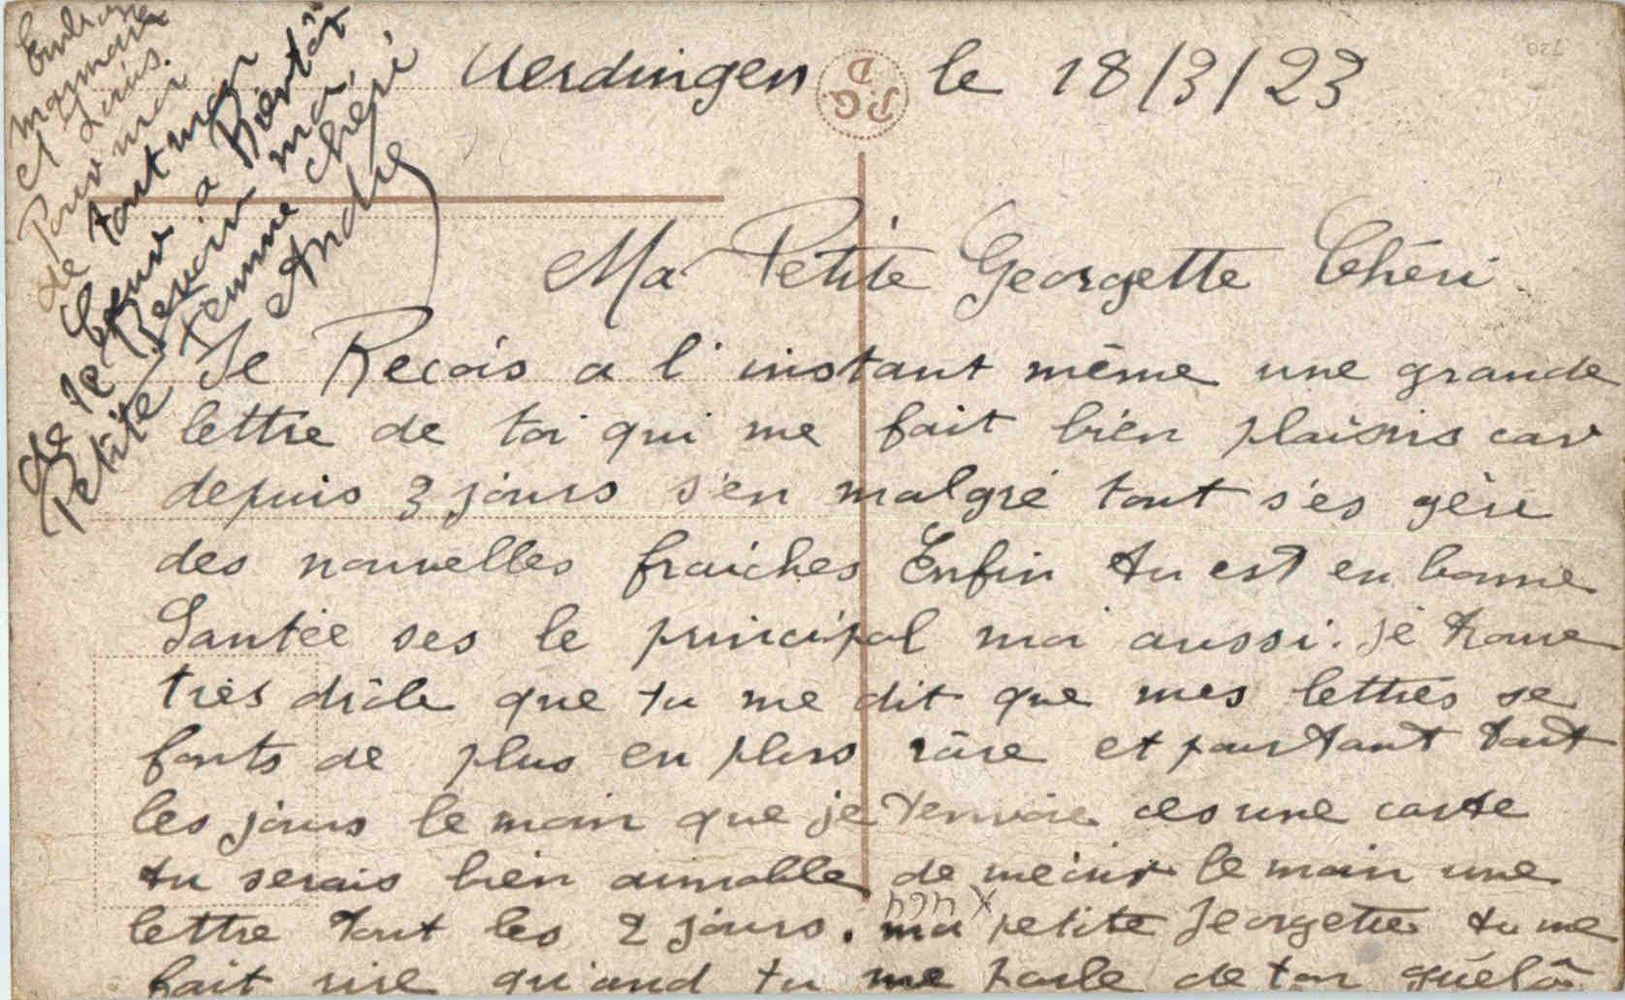 Uerdingen le 18/3/23
Ma Petite Georgette Chéri
Je Recois a l'instant même une grande
lettre de toi qui me fait bien plaisir car
depuis 3 jours s'en malgré tout s'es gère
des nouvelles fraiches Enfin tu est en bonne
Santée ses le principal moi aussi. je trouve
très drôle que tu me dit que mes lettres se
fonts de plus en plus râre et pourtant tout
les jours le moin que je t'envoie ces une carte
tu serais bien aimable de mécirt le moin une
lettre tout les 2 jours. ma petite Georgette tu me
fait rire quand tu me parle de ton
maman
et Louis.
Pour moi
de tout mon
Coeur a Bientôt
de te Revoir ma
Petite Femme chéri
André